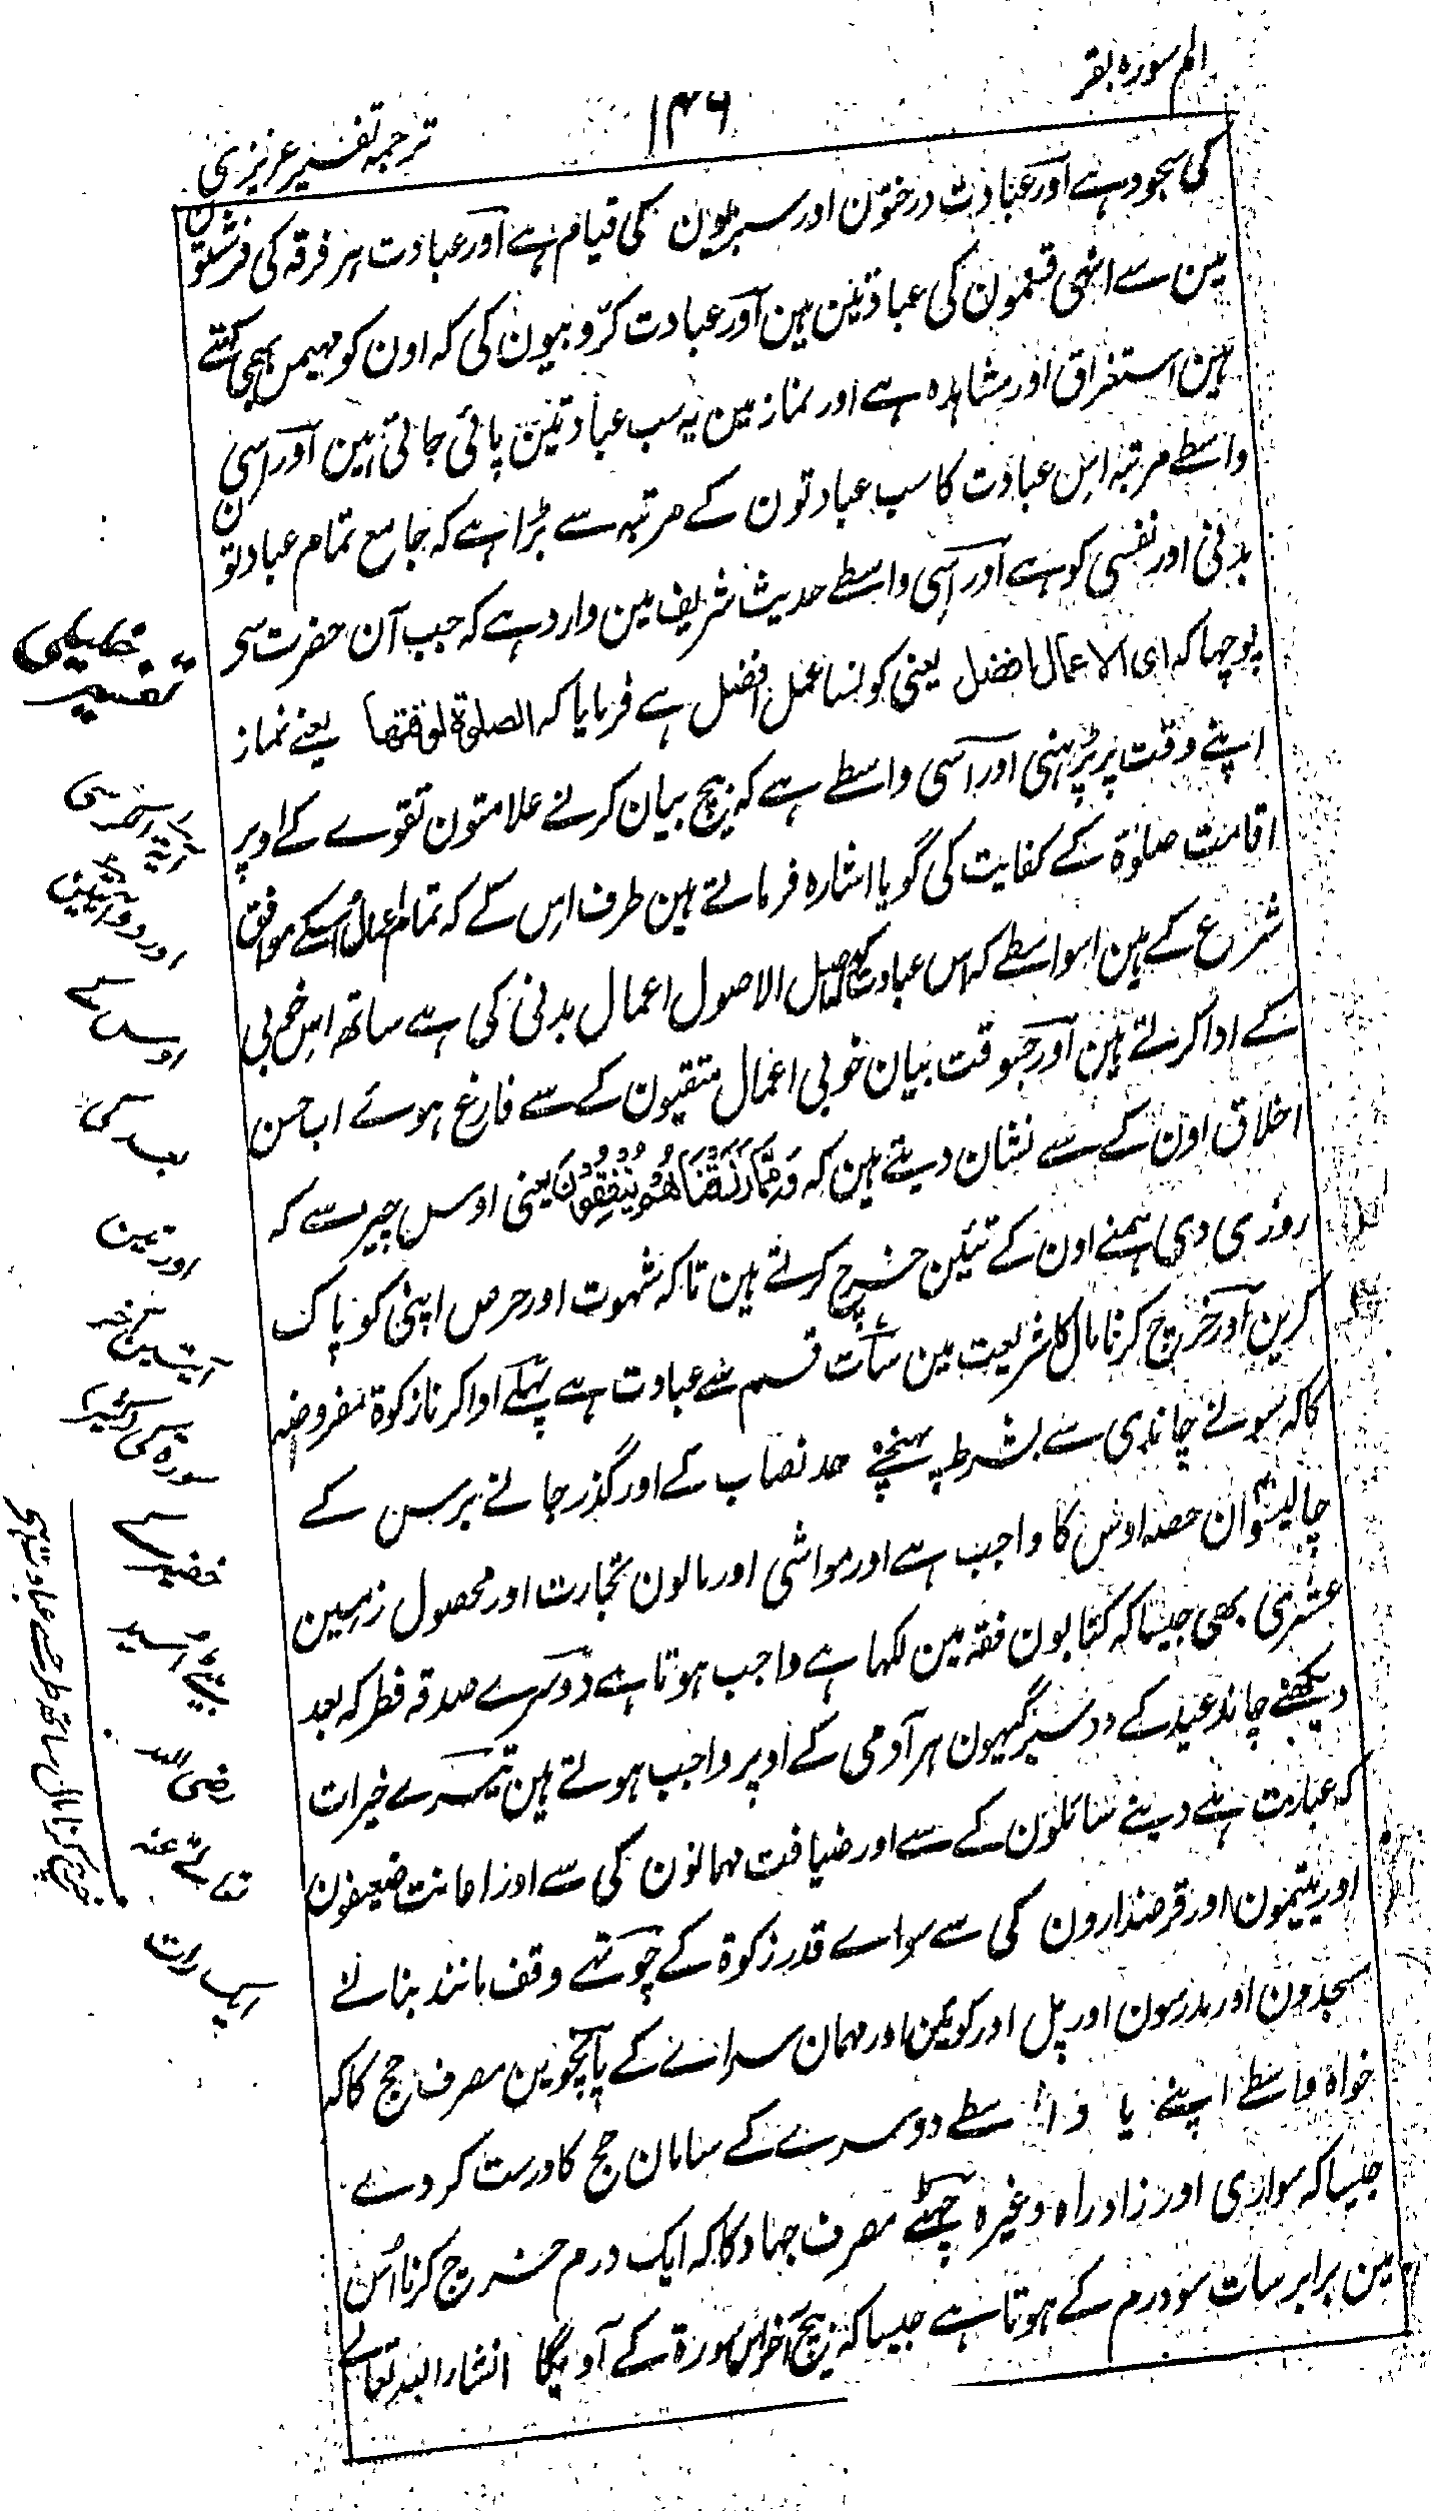 الم سورہ بقر
۱۴۶
ترجمہ تفسیر عزیزی
کی سجود ہے اور عبادت درختون اور سبزیون کی قیام ہے اور عبادت ہر فرقہ کی فرشتون
مین سے انہی قسمون کی عبادتین ہین اور عبادت کرّوبیون کی کہ اون کو مہیمن بھی کہتے
ہین استغراق اور مشاہدہ ہے اور نماز مین یہ سب عبادتین پائی جاتی ہین اور اسی
واسطے مرتبہ اس عبادت کا سب عبادتون کے مرتبہ سے بڑا ہے کہ جامع تمام عبادتون
بدنی اور نفسی کو ہے اور اسی واسطے حدیث شریف مین وارد ہے کہ جب آن حضرت سے
پوچھا کہ ای الاعمال افضل یعنی کونسا عمل افضل ہے فرمایا کہ الصلوۃ لوقتہا یعنے نماز
اپنے وقت پر پڑہنی اور اسی واسطے ہے کہ بیچ بیان کرنے علامتون تقوے کے اوپر
اقامت صلوۃ کے کفایت کی گویا اشارہ فرماتے ہین طرف اس کے کہ تمام اعمال اسکے موافق
شرع کے ہین اسواسطے کہ اس عبادت کو کہ اصل الاصول اعمال بدنی کی ہے ساتھ اس خوبی
کے ادا کرتے ہین اور جسوقت بیان خوبی اعمال متقیون کے سے فارغ ہوئے اب حسن
اخلاق اون کے سے نشان دیتے ہین کہ وَمِمَّا رَزَقْنَاهُمْ يُنْفِقُونَ یعنی اوس چیز سے کہ
روزی دی ہمنے اون کے تئین خرچ کرتے ہین تاکہ شہوت اور حرص اپنی کو پاک
کرین اور خرچ کرنا مال کا شریعت مین سات قسم سے عبادت ہے پہلے ادا کرنا زکوۃ مفروضہ
کا کہ سونے چاندی سے بشرط پہنچنے حد نصاب کے اور گذر جانے برس کے
چالیسوان حصہ اوس کا واجب ہے اور مواشی اور مالون تجارت اور محصول زمین
عشری بھی جیسا کہ کتابون فقہ مین لکہا ہے واجب ہوتا ہے دوسرے صدقہ فطر کہ بعد
دیکھنے چاند عید کے دو سیر گیہون ہر آدمی کے اوپر واجب ہوتے ہین تیسرے خیرات
کہ عبارت ہے دینے سائلون کے سے اور ضیافت مہمانون کی سے اور اعانت ضعیفون
اور یتیمون اور قرضدارون کی سے سواے قدر زکوۃ کے چوتھے وقف مانند بنانے
مسجدون اور مدرسون اور پل اور کوئین اور مہمان سرائے کے پانچوین مصرف حج کا کہ
خواہ واسطے اپنے یا واسطے دوسرے کے سامان حج کا درست کر دے
جیسا کہ سواری اور زاد راہ وغیرہ چھٹے مصرف جہاد کا کہ ایک درم خرچ کرنا اس
مین برابر سات سو درم کے ہوتا ہے جیسا کہ بیچ آخر اس سورۃ کے آویگا انشاء اللہ تعالے
تفسیر
بعد کی
اور تین
رضی اللہ
تعالے عنہ
خرچ کرنا مال سات طرح سے عبادت ہے